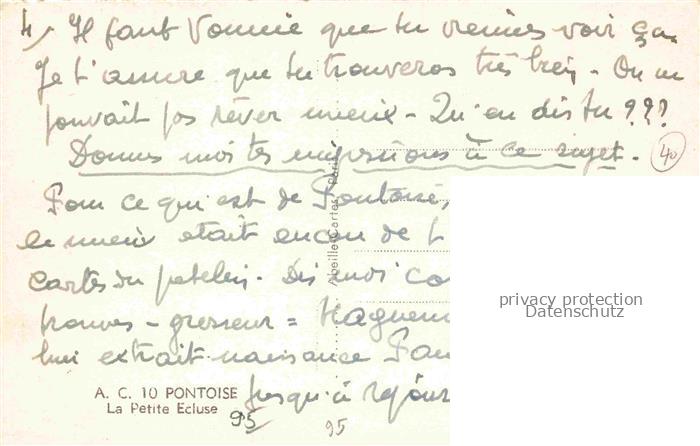 4/. Il faut Vonnie que tu viennes voir ça.
Je t'assure que tu trouveras très bien - On ne
pouvait pas rêver mieux - Qu'en dis tu ???
Donnes moi tes impressions à ce sujet.
40
Pour ce qui est de Pontoise,
le mieux était encore de t
cartes du patelin. Dis moi co
trouves - grosseur =
lui extrait naissance
jusqu'à
A. C. 10 PONTOISE
La Petite Ecluse
95
95
Abeille-Cartes, Paris
privacy protection
Datenschutz